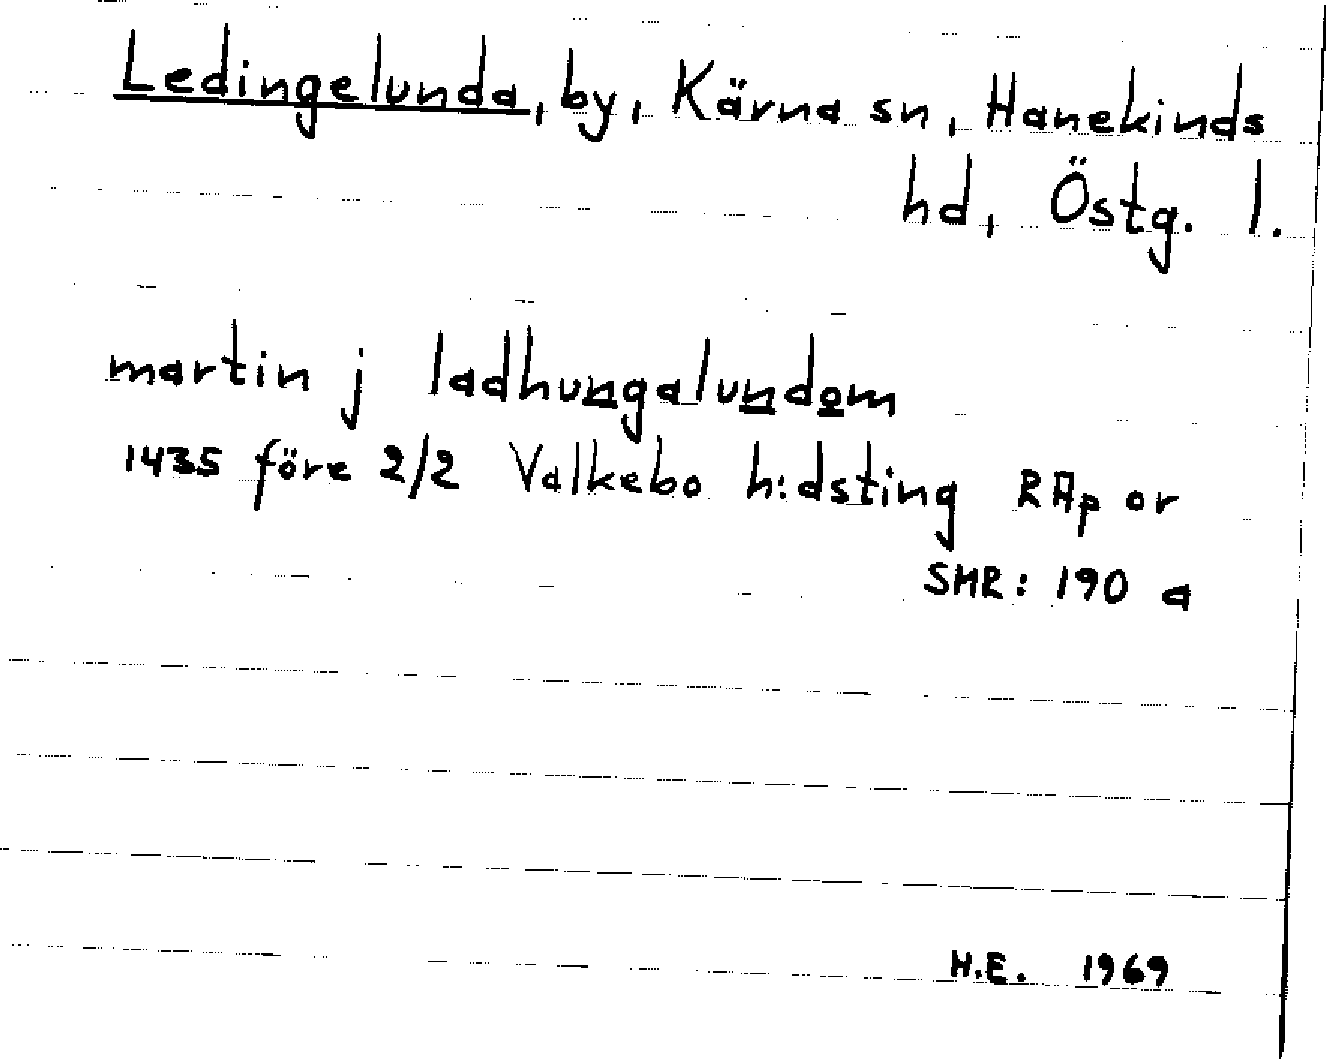 Ledingelunda, by, Kärna sn, Hanekinds
hd, Östg. l.
martin j ladhungalundom
1435 före 2/2 Valkebo h:dsting RAp or
SMR: 190 a
H.E. 1969